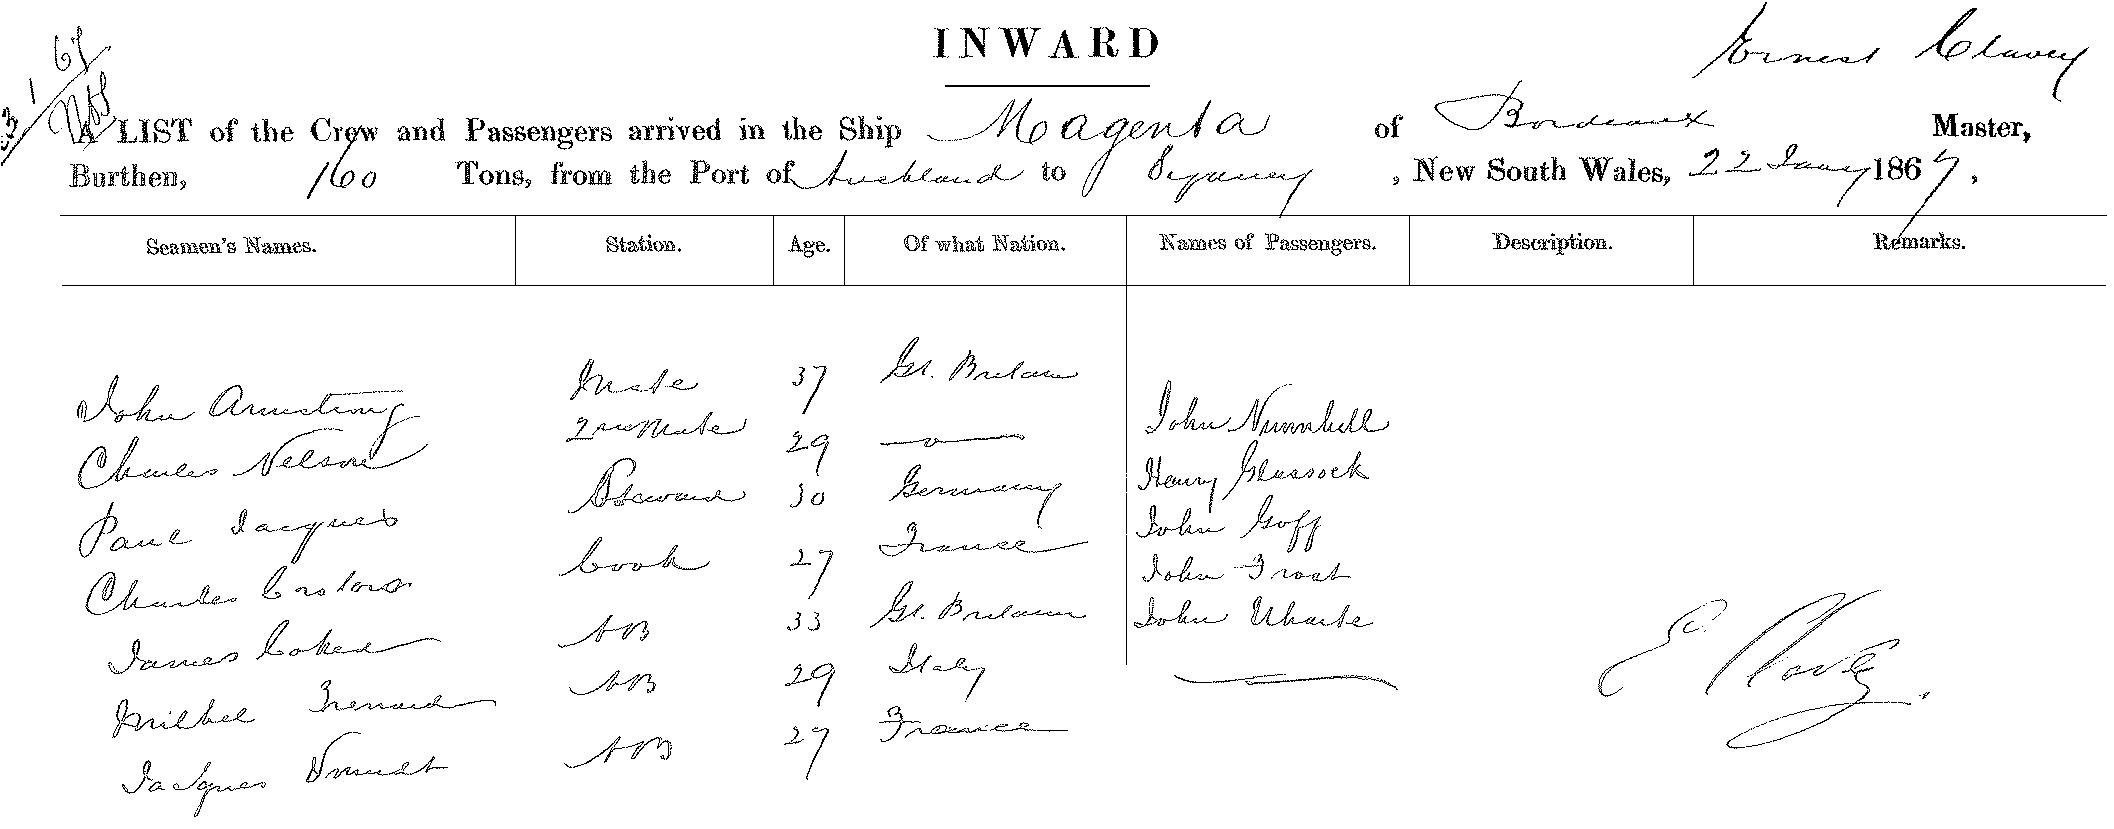 INWARD
Ernest Clavey
A LIST of the Crew and Passengers arrived in the Ship Magenta of Bordeaux Master,
Burthen, 160 Tons, from the Port of Auckland to Sydney, New South Wales, 22 Jany 1867,
Seamen's Names. Station. Age. Of what Nation. Names of Passengers. Description. Remarks.
John Armstrong Mate 37 Gt. Britain
Charles Nelson 2nd Mate 29 —o— John
Paul Jacques Steward 30 Germany Henry Glassock
Charles Cook 27 France John Goff
James AB 33 Gt. Britain John Frost
AB 29 Italy John White
Jacques AB 27 France
E Clavey.